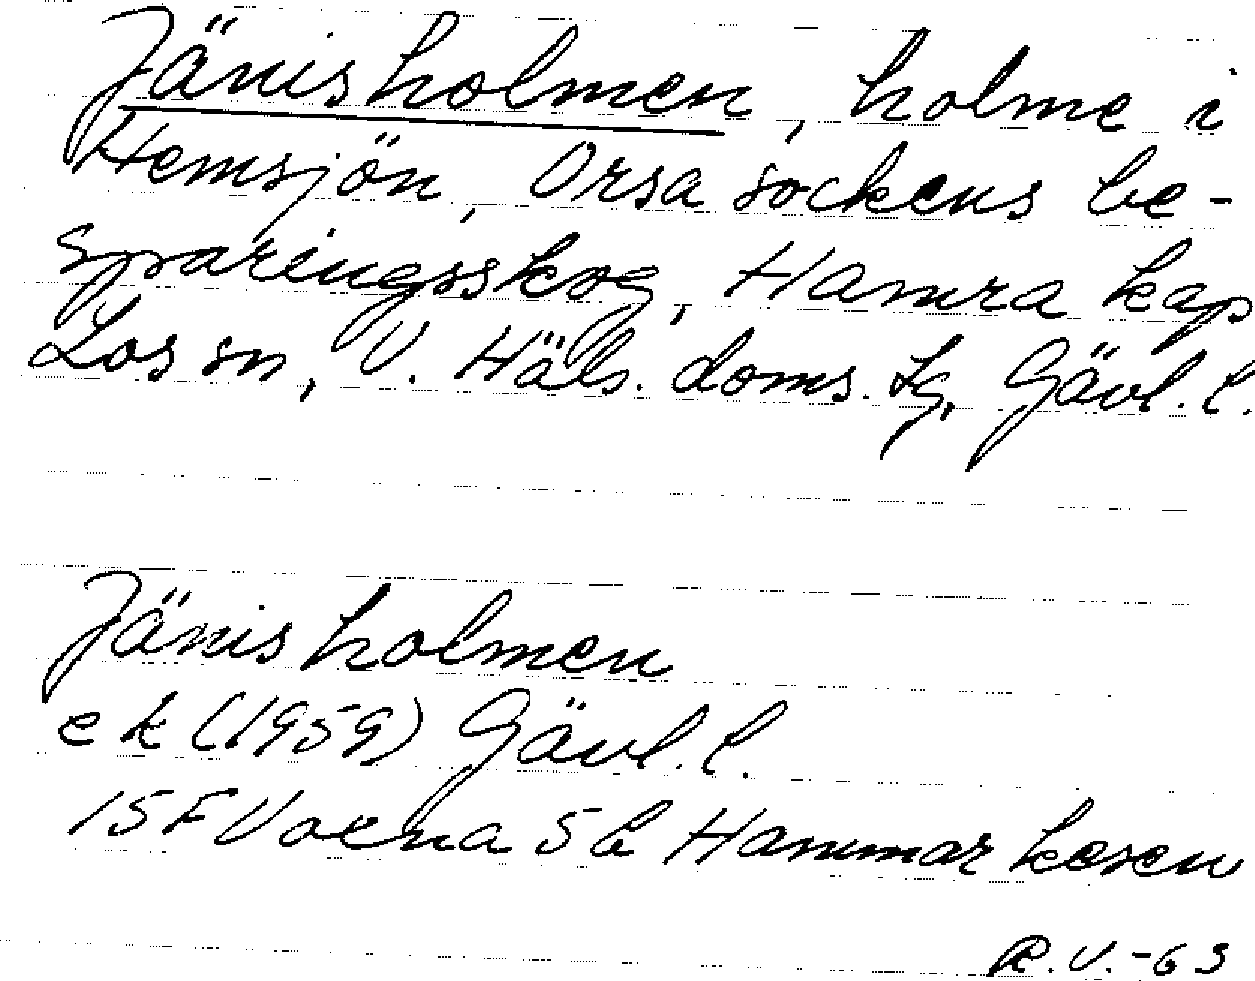 Jänisholmen, holme i
Hemsjön, Orsa sockens be-
sparingsskog, Hamra kap
Los sn, V. Häls. doms. tg, Gävl. l.
Jänisholmen
ek (1959) Gävl. l.
15F Voxna 5b Hammarkosen
R.V.-63